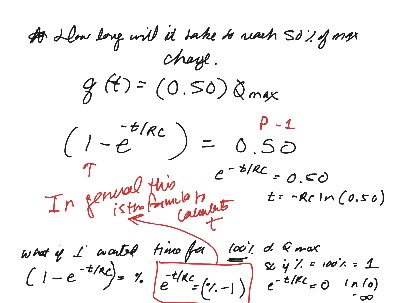 How long will it take to reach 50% of max
charge.
q(t) = (0.50) Qmax
P-1
(1 - e^-t/RC) = 0.50
e^-t/RC = 0.50
t = -RC ln(0.50)
In general this
is the formula to
calculate
t
what if I wanted time for 100% of Qmax
so if % = 100% = 1
(1 - e^-t/RC) = %
e^-t/RC = (% - 1)
e^-t/RC = 0
ln(0)
-∞